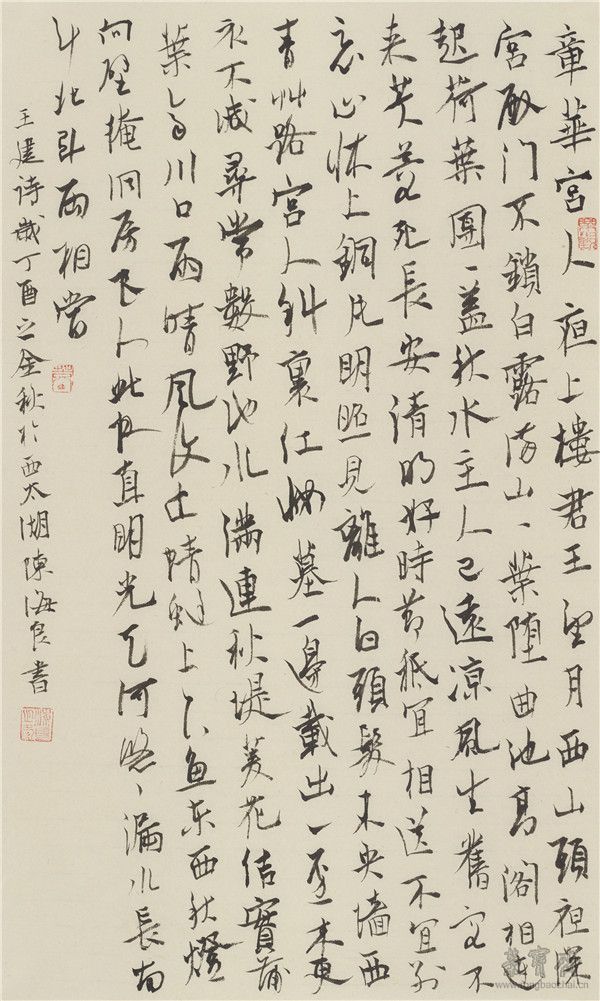 章華宮人夜上樓君王望月西山頭夜深
宮殿門不鎖白露滿山々葉墮曲池高閣相連
起荷葉團々蓋秋水主人已遠涼風生舊客不
来芙蓉死長安清明好時節秪宜相送不宜別
惡心牀上銅片明照見離人白頭髮未央墻西
青艸路宮人斜裏红妝墓一邊載出一邊来更
衣不減尋常數野池水滿連秋堤菱花结實蒲
葉齊川口雨晴風復止蜻蜓上下魚东西秋燈
向壁掩洞房良人此夜直明光天河悠々漏水長南
斗北斗兩相當
王建詩歲丁酉之金秋於西太湖陳海良書
www.rongbaozhai.cn